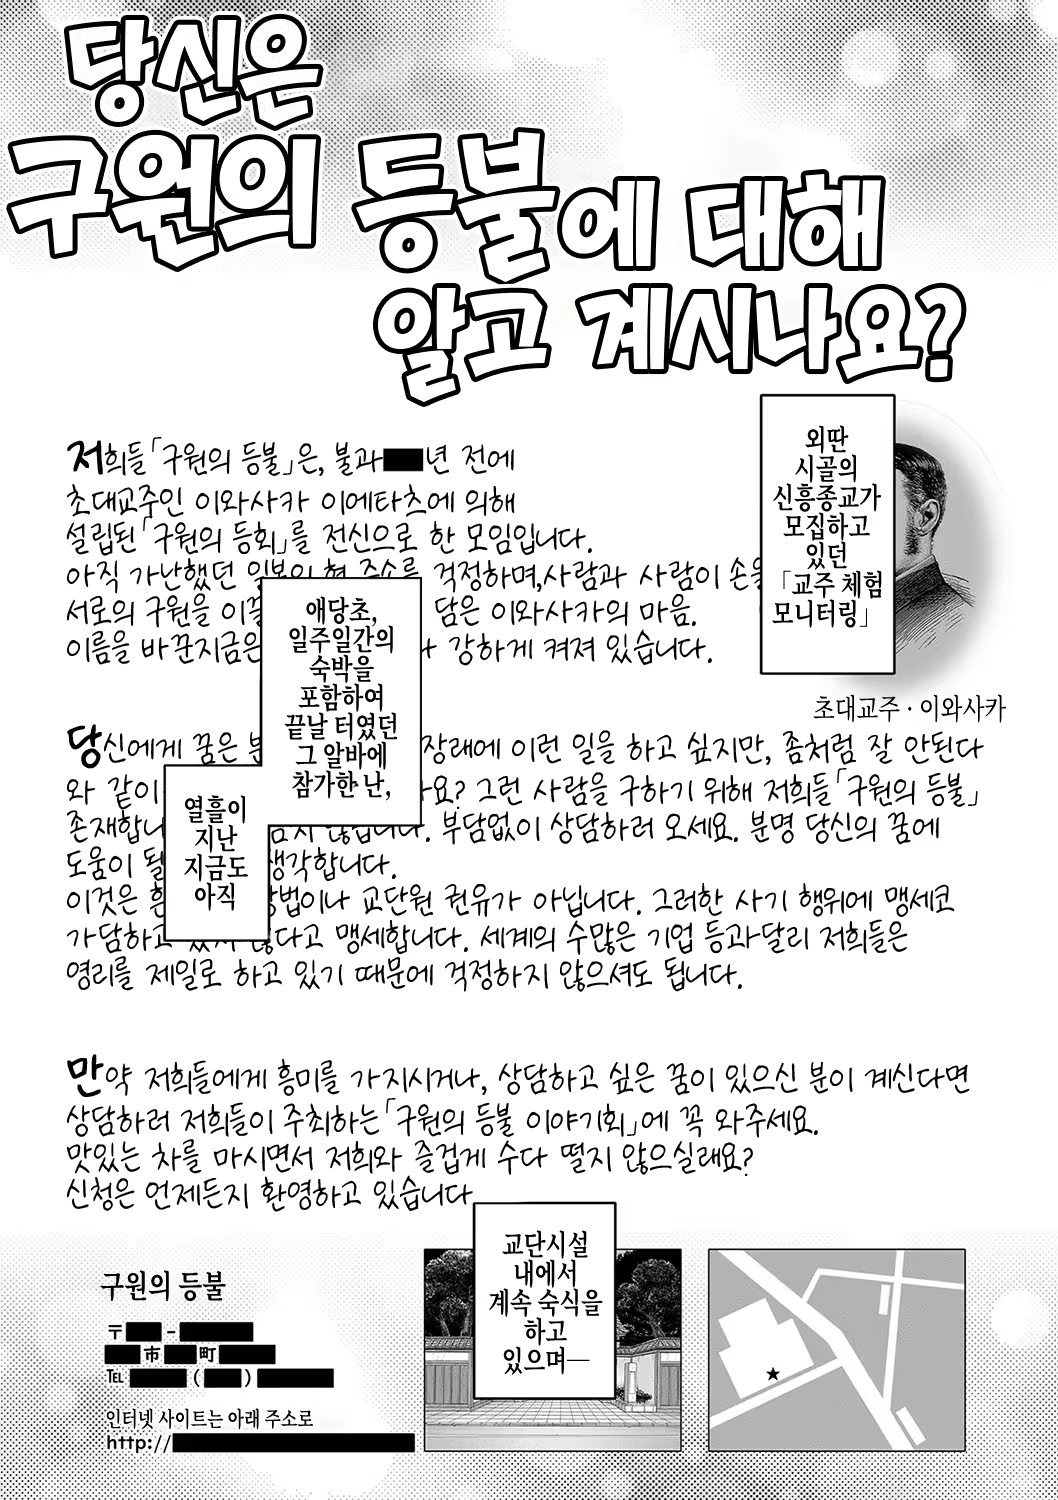 당신은
구원의 등불에 대해
알고 계시나요?
외딴
시골의
신흥종교가
모집하고
있던
「교주 체험
모니터링」
저희들「구원의 등불」은, 불과 년 전에
초대교주인 이와사카 이에타츠에 의해
설립된「구원의 등회」를 전신으로 한 모임입니다.
아직 가난했던 일본의 현 주소를 걱정하며,사람과 사람이 손을
서로의 구원을 이끌 담은 이와사카의 마음.
이름을 바꾼지금은 강하게 켜져 있습니다.
초대교주 · 이와사카
애당초,
일주일간의
숙박을
포함하여
끝날 터였던
그 알바에
참가한 난,
당신에게 꿈은 장래에 이런 일을 하고 싶지만, 좀처럼 잘 안된다
와 같이 요? 그런 사람을 구하기 위해 저희들「구원의 등불」
존재합니 않습니다. 부담없이 상담하러 오세요. 분명 당신의 꿈에
도움이 될 생각합니다.
이것은 방법이나 교단원 권유가 아닙니다. 그러한 사기 행위에 맹세코
가담하고 있지 않다고 맹세합니다. 세계의 수많은 기업 등과달리 저희들은
영리를 제일로 하고 있기 때문에 걱정하지 않으셔도 됩니다.
열흘이
지난
지금도
아직
만약 저희들에게 흥미를 가지시거나, 상담하고 싶은 꿈이 있으신 분이 계신다면
상담하러 저희들이 주최하는「구원의 등불 이야기회」에 꼭 와주세요.
맛있는 차를 마시면서 저희와 즐겁게 수다 떨지 않으실래요?
신청은 언제든지 환영하고 있습니다
교단시설
내에서
계속 숙식을
하고
있으며―
구원의 등불
〒 -
市 町
℡ ( )
인터넷 사이트는 아래 주소로
http://